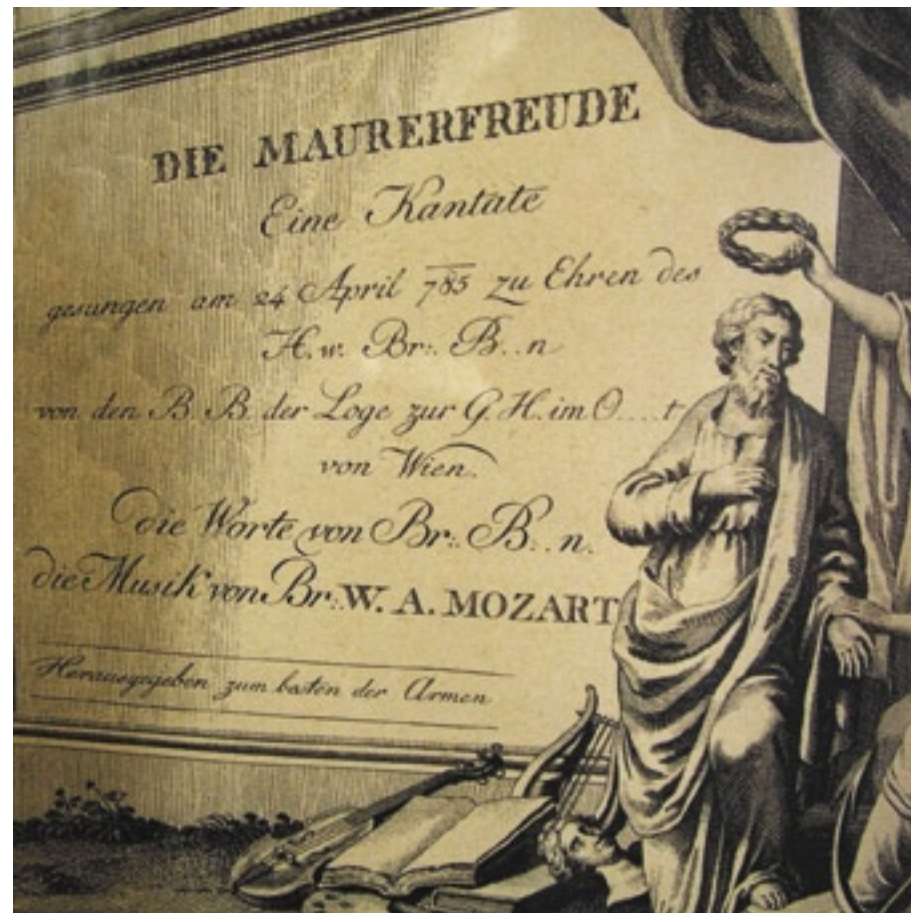 DIE MAURERFREUDE
Eine Kantate
gesungen am 24 April 785 zu Ehren des
H. w. Br:. B. . n
von den B. B. der Loge zur G. H. im O....t
von Wien.
die Worte von Br:. B. . n.
die Musik von Br:. W. A. MOZART
Herausgegeben zum besten der Armen